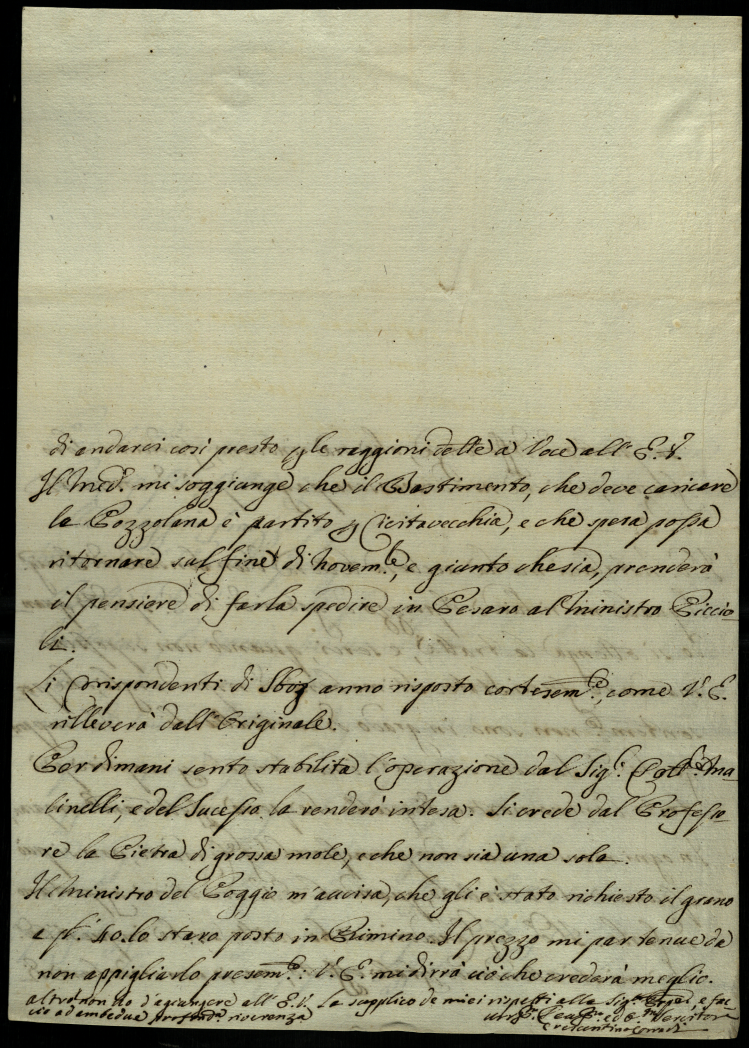 di andarci così presto p le raggioni dette a Voce all' E. V.
Il Med.º mi soggiunge che il Bastimento, che deve caricare
la Pozzolana è partito p Civitavecchia, e che spera possa
ritornare sul fine di Novem.e, e giunto che sia, prenderà
il pensiere di farla spedire in Pesaro al Ministro Piccio
li.
Li Corrispondenti di anno risposto cortesem.e, come V. E.
rilleverà dall' Originale.
Per dimani sento stabilita l'operazione dal Sig.r Dott.r Ma
linelli, e del Sucesso la renderò intesa. Si crede dal Professo
re la Pietra di grossa mole, e che non sia una sola.
Il Ministro del Poggio m'avvisa, che gli è stato richiesto il grano
a p.i 40. lo staro posto in Rimino. Il prezzo mi par tenue da
non appigliarlo presem.e: V. E. mi dirrà ciò che crederà meglio.
altro non ho d'agiungere all' E. V. La supplico de miei rispetti alla Sig.ra e fac
cio ad ambedue profond.a riverenza
Um.o Dev.mo ed Servitore